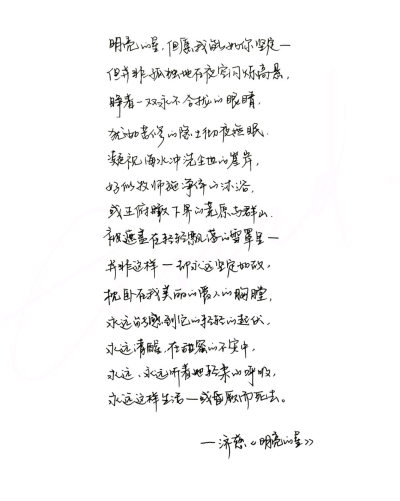 明亮的星,但愿我能如你坚定—
但并非孤独地在夜空闪烁高悬,
睁着一双永不合拢的眼睛.
犹如苦修的隐士彻夜无眠.
凝视海水冲洗尘世的崖岸,
好似牧师施净体的沐浴,
或正俯瞰下界的荒原与群山.
被遮盖在轻轻飘落的雪罩里—
并非这样—却永远坚定如故,
枕卧在我美丽的爱人的胸膛,
永远能感到它的轻轻的起伏,
永远清醒,在甜蜜的不安中,
永远、永远听着她轻柔的呼吸,
永远这样生活—或昏厥而死去。
—济慈《明亮的星》